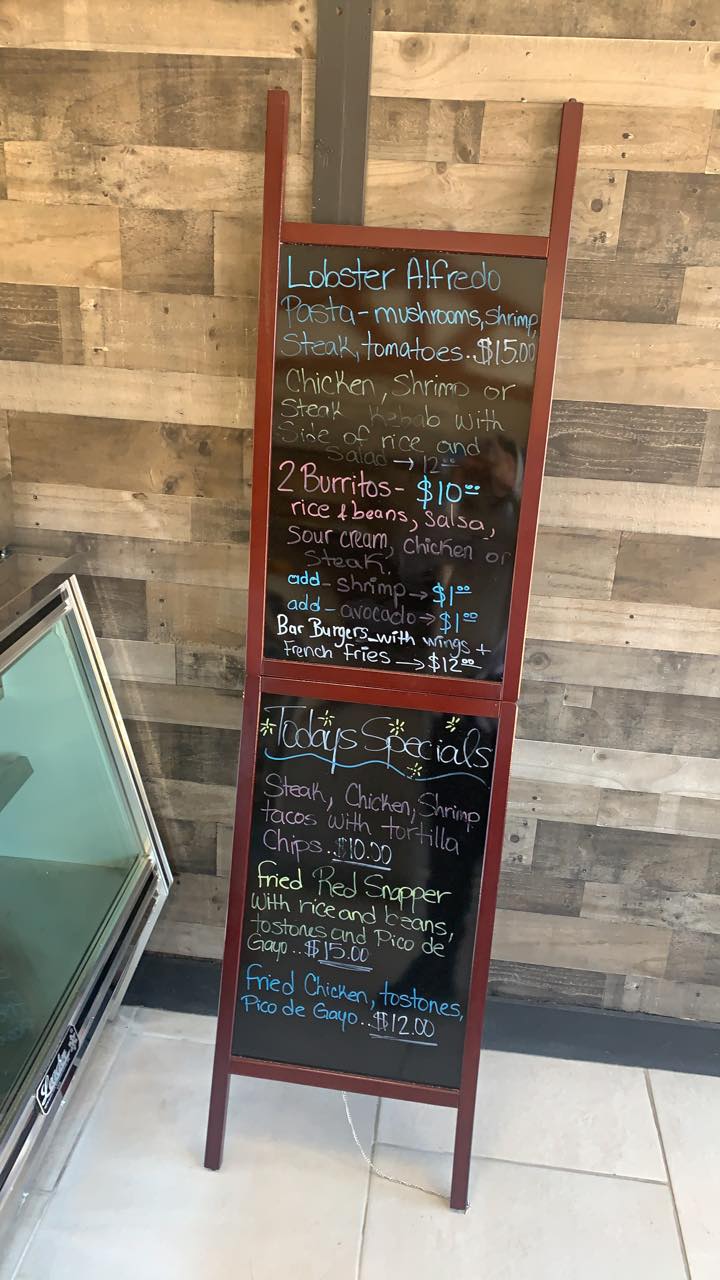 Lobster Alfredo
Pasta - mushrooms, shrimp,
Steak, tomatoes..$15.00
Chicken, Shrimp or
Steak Kebab with
Side of rice and
Salad → 12.00
2 Burritos - $10.00
rice & beans, salsa,
sour cream, chicken or
Steak.
add - shrimp → $1.00
add - avocado → $1.00
Bar Burgers with wings +
French fries → $12.00
Todays Specials
Steak, Chicken, Shrimp
tacos with tortilla
Chips..$10.00
fried Red Snapper
With rice and beans,
tostones and Pico de
Gayo...$15.00
fried Chicken, tostones,
Pico de Gayo..$12.00